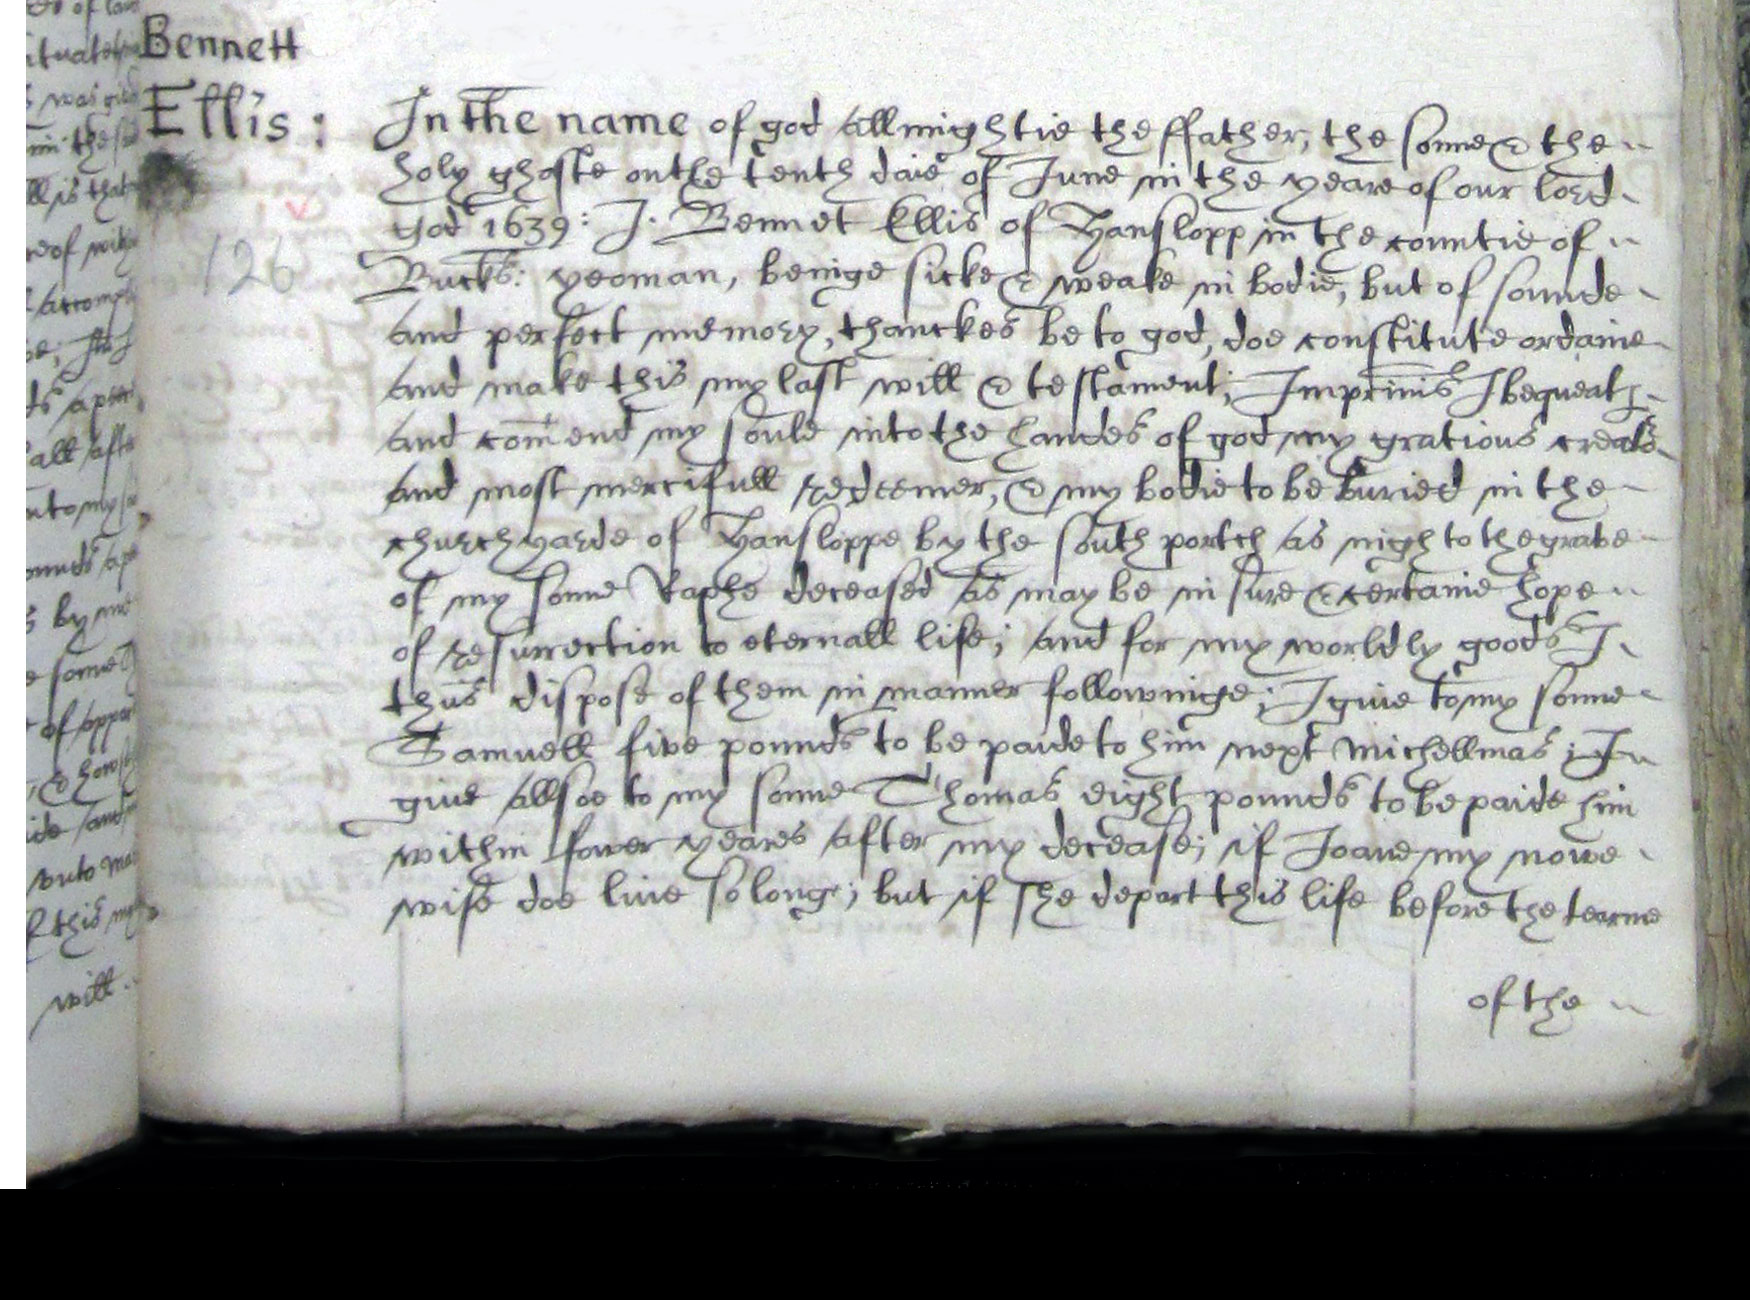 Bennett
Ellis:
126
In the name of god allmightie the ffather, the sonne & the
holy ghoste on the tenth daie of June in the yeare of our lord
god 1639: J. Bennet Ellis of Hanslopp in the countie of
Bucks: yeoman, beinge sicke & weake in bodie, but of sounde
and perfect memory, thanckes be to god, doe constitute ordaine
and make this my last will & testament; Imprimis I bequeath
and comend my soule into the handes of god my gratious creator
and most mercifull redeemer, & my bodie to be buried in the
churchyarde of Hansloppe by the south portch as nigh to the grave
of my sonne Raphe deceased as may be in sure & certaine hope
of resurrection to eternall life; and for my worldly goods I
thus dispose of them in manner followinge; I give to my sonne
Samuell five pounds to be paide to him next Michellmas; I
give allsoe to my sonne Thomas eight pounds to be paide him
within fower yeares after my decease; if Joane my nowe
wife doe live so longe; but if she depart this life before the tearme
of the
will